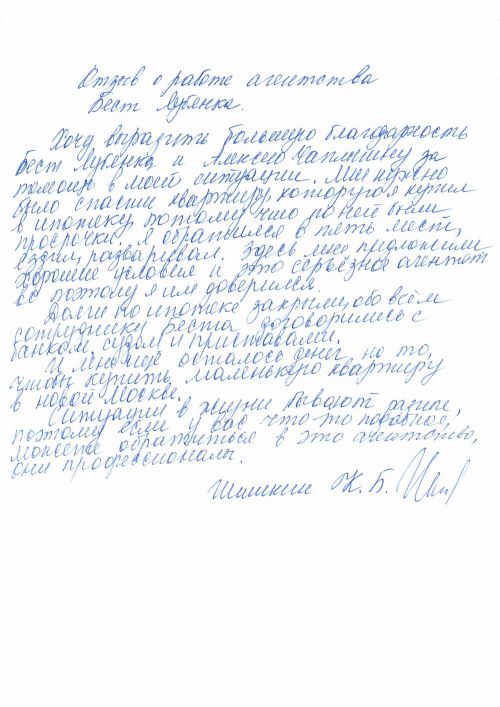 Отзыв о работе агентства
Бест Лубянка.
Хочу выразить большую благодарность
Бест Лубянка и Алексею Чаплыгину за
помощь в моей ситуации. Мне нужно
было спасти квартиру, которую я купил
в ипотеку потому что по ней были
просрочки. Я обратился в пять мест,
ездил, разваривал. Здесь мне предложили
хорошие условия и это серьёзное агентст
во поэтому я им доверился.
Долги по ипотеке закрыли, обо всём
сотрудники Беста договорились с
банком, судом и приставами.
И мне ещё осталось денег на то,
чтобы купить маленькую квартиру
в новой Москве.
Ситуации в жизни бывают разные,
поэтому если у вас что-то подобное,
можете обратиться в это агентство,
они профессионалы.
Шишкин К. Б.